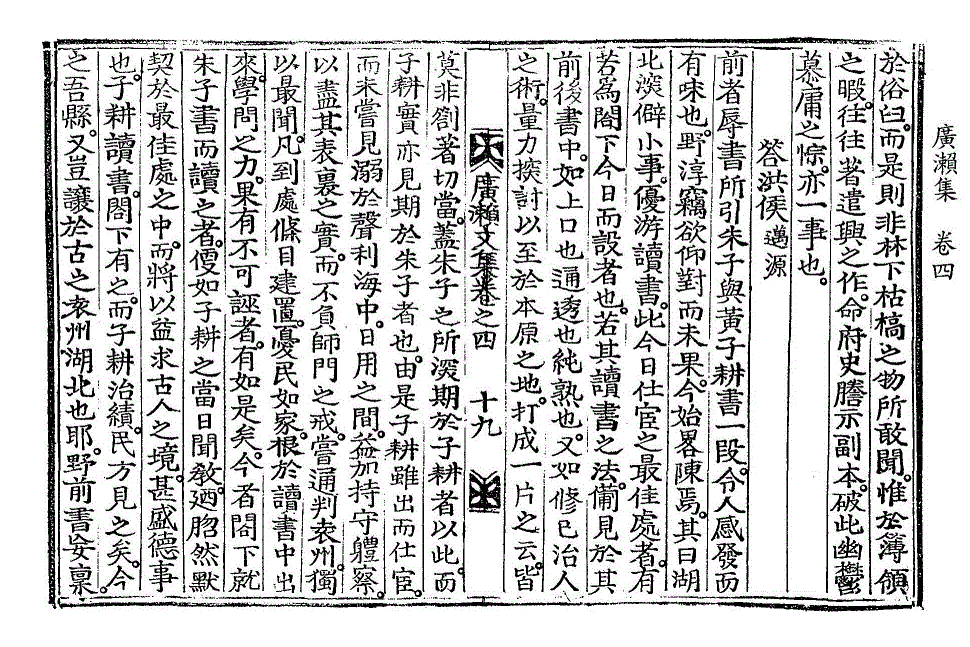 廣瀨集 卷四
於俗臼。而是則非林下枯槁之物所敢聞。惟於簿領
之暇。往往著遣興之作。命府史謄示副本。破此幽鬱
慕庸之悰。亦一事也。
答洪侯邁源
前者辱書所引朱子與黃子耕書一段。令人感發而
有味也。野淳竊欲仰對而未果。今始畧陳焉。其曰湖
北淡僻小事。優游讀書。此今日仕宦之最佳處者。有
若爲閤下今日而設者也。若其讀書之法。備見於其
前後書中。如上口也通透也純熟也。又如修已治人
之術。量力探討以至於本原之地。打成一片之云。皆
廣瀨文集卷之四 十九
莫非劄著切當。蓋朱子之所深期於子耕者以此。而
子耕實亦見期於朱子者也。由是子耕雖出而仕宦。
而未嘗見溺於聲利海中。日用之間。益加持守軆察。
以盡其表裏之實。而不負師門之戒。嘗通判袁州。獨
以最聞。凡到處條目建置。憂民如家。根於讀書中出
來。學問之力。果有不可誣者。有如是矣。今者閤下就
朱子書而讀之者。僾如子耕之當日聞敎。廼脗然默
契於最佳處之中。而將以益求古人之境。甚盛德事
也。子耕讀書。閤下有之。而子耕治績。民方見之矣。今
之吾縣。又豈讓於古之袁州湖北也耶。野前書妄稟。